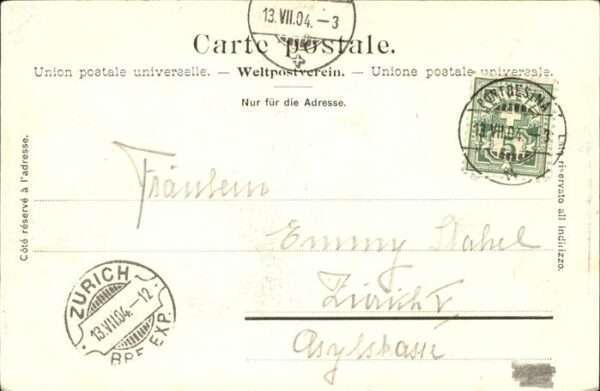 13.VII.04.-3
Carte postale.
Union postale universelle. — Weltpostverein. — Unione postale universale.
Nur für die Adresse.
PONTRESINA
13.VII.04.
5
Côté réservé à l'adresse.
Lato riservato all indirizzo.
Fräulein
Emmy Stahel
Zürich V
Asylstrasse
ZÜRICH
13.VII.04.-12
BRF. EXP.